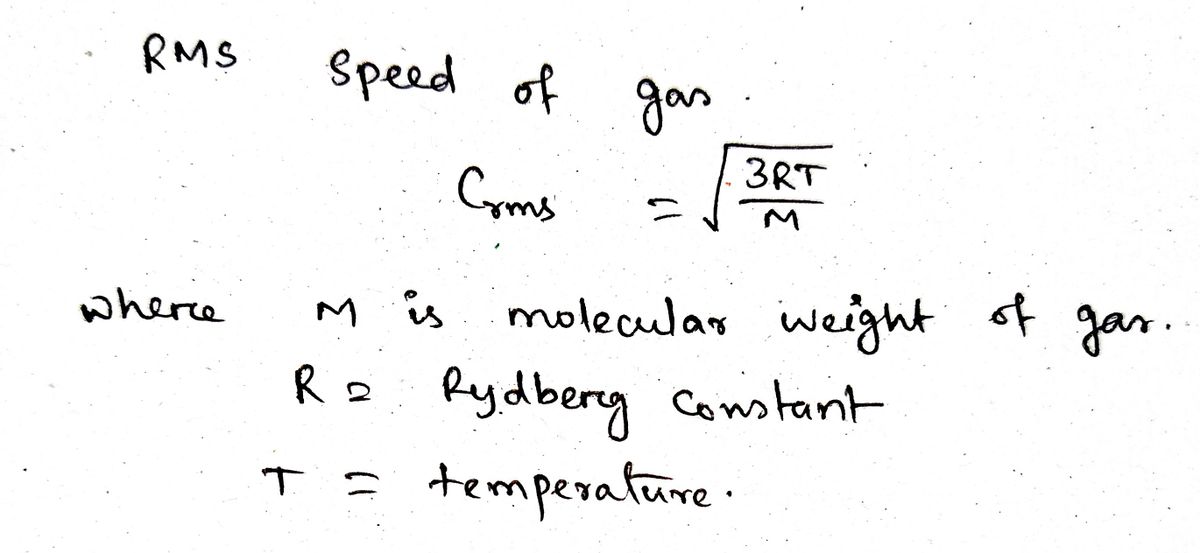 RMS Speed of gas.
Crms = √3RT/M
where M is molecular weight of gas.
R = Rydberg constant
T = temperature.